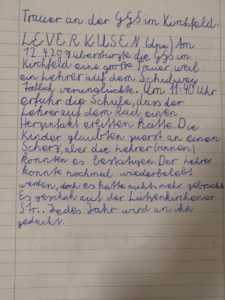 Trauer an der GGS im Kirchfeld-
LEVERKUSEN (dpa) Am
überstürzte die GGS im
Kirchfeld eine große Trauer, weil
ein Lehrer auf dem Schulweg
Tödlich verunglückte. Um 11:40 Uhr
erfuhr die Schule, das der
Lehrer auf dem Rad einen
Herzinfakt erlitten hatte. Die
Kinder glaubten zuerst an einen
Scherz, aber die Lehrer(innen)
konnten es bestätigen. Der Lehrer
konnte nochmal wiederbelebt
werden, doch es hatte nichts mehr gebracht
Es geschah auf der Lützenkirchener
Str.. Jedes Jahr wird an ihn
gedacht.